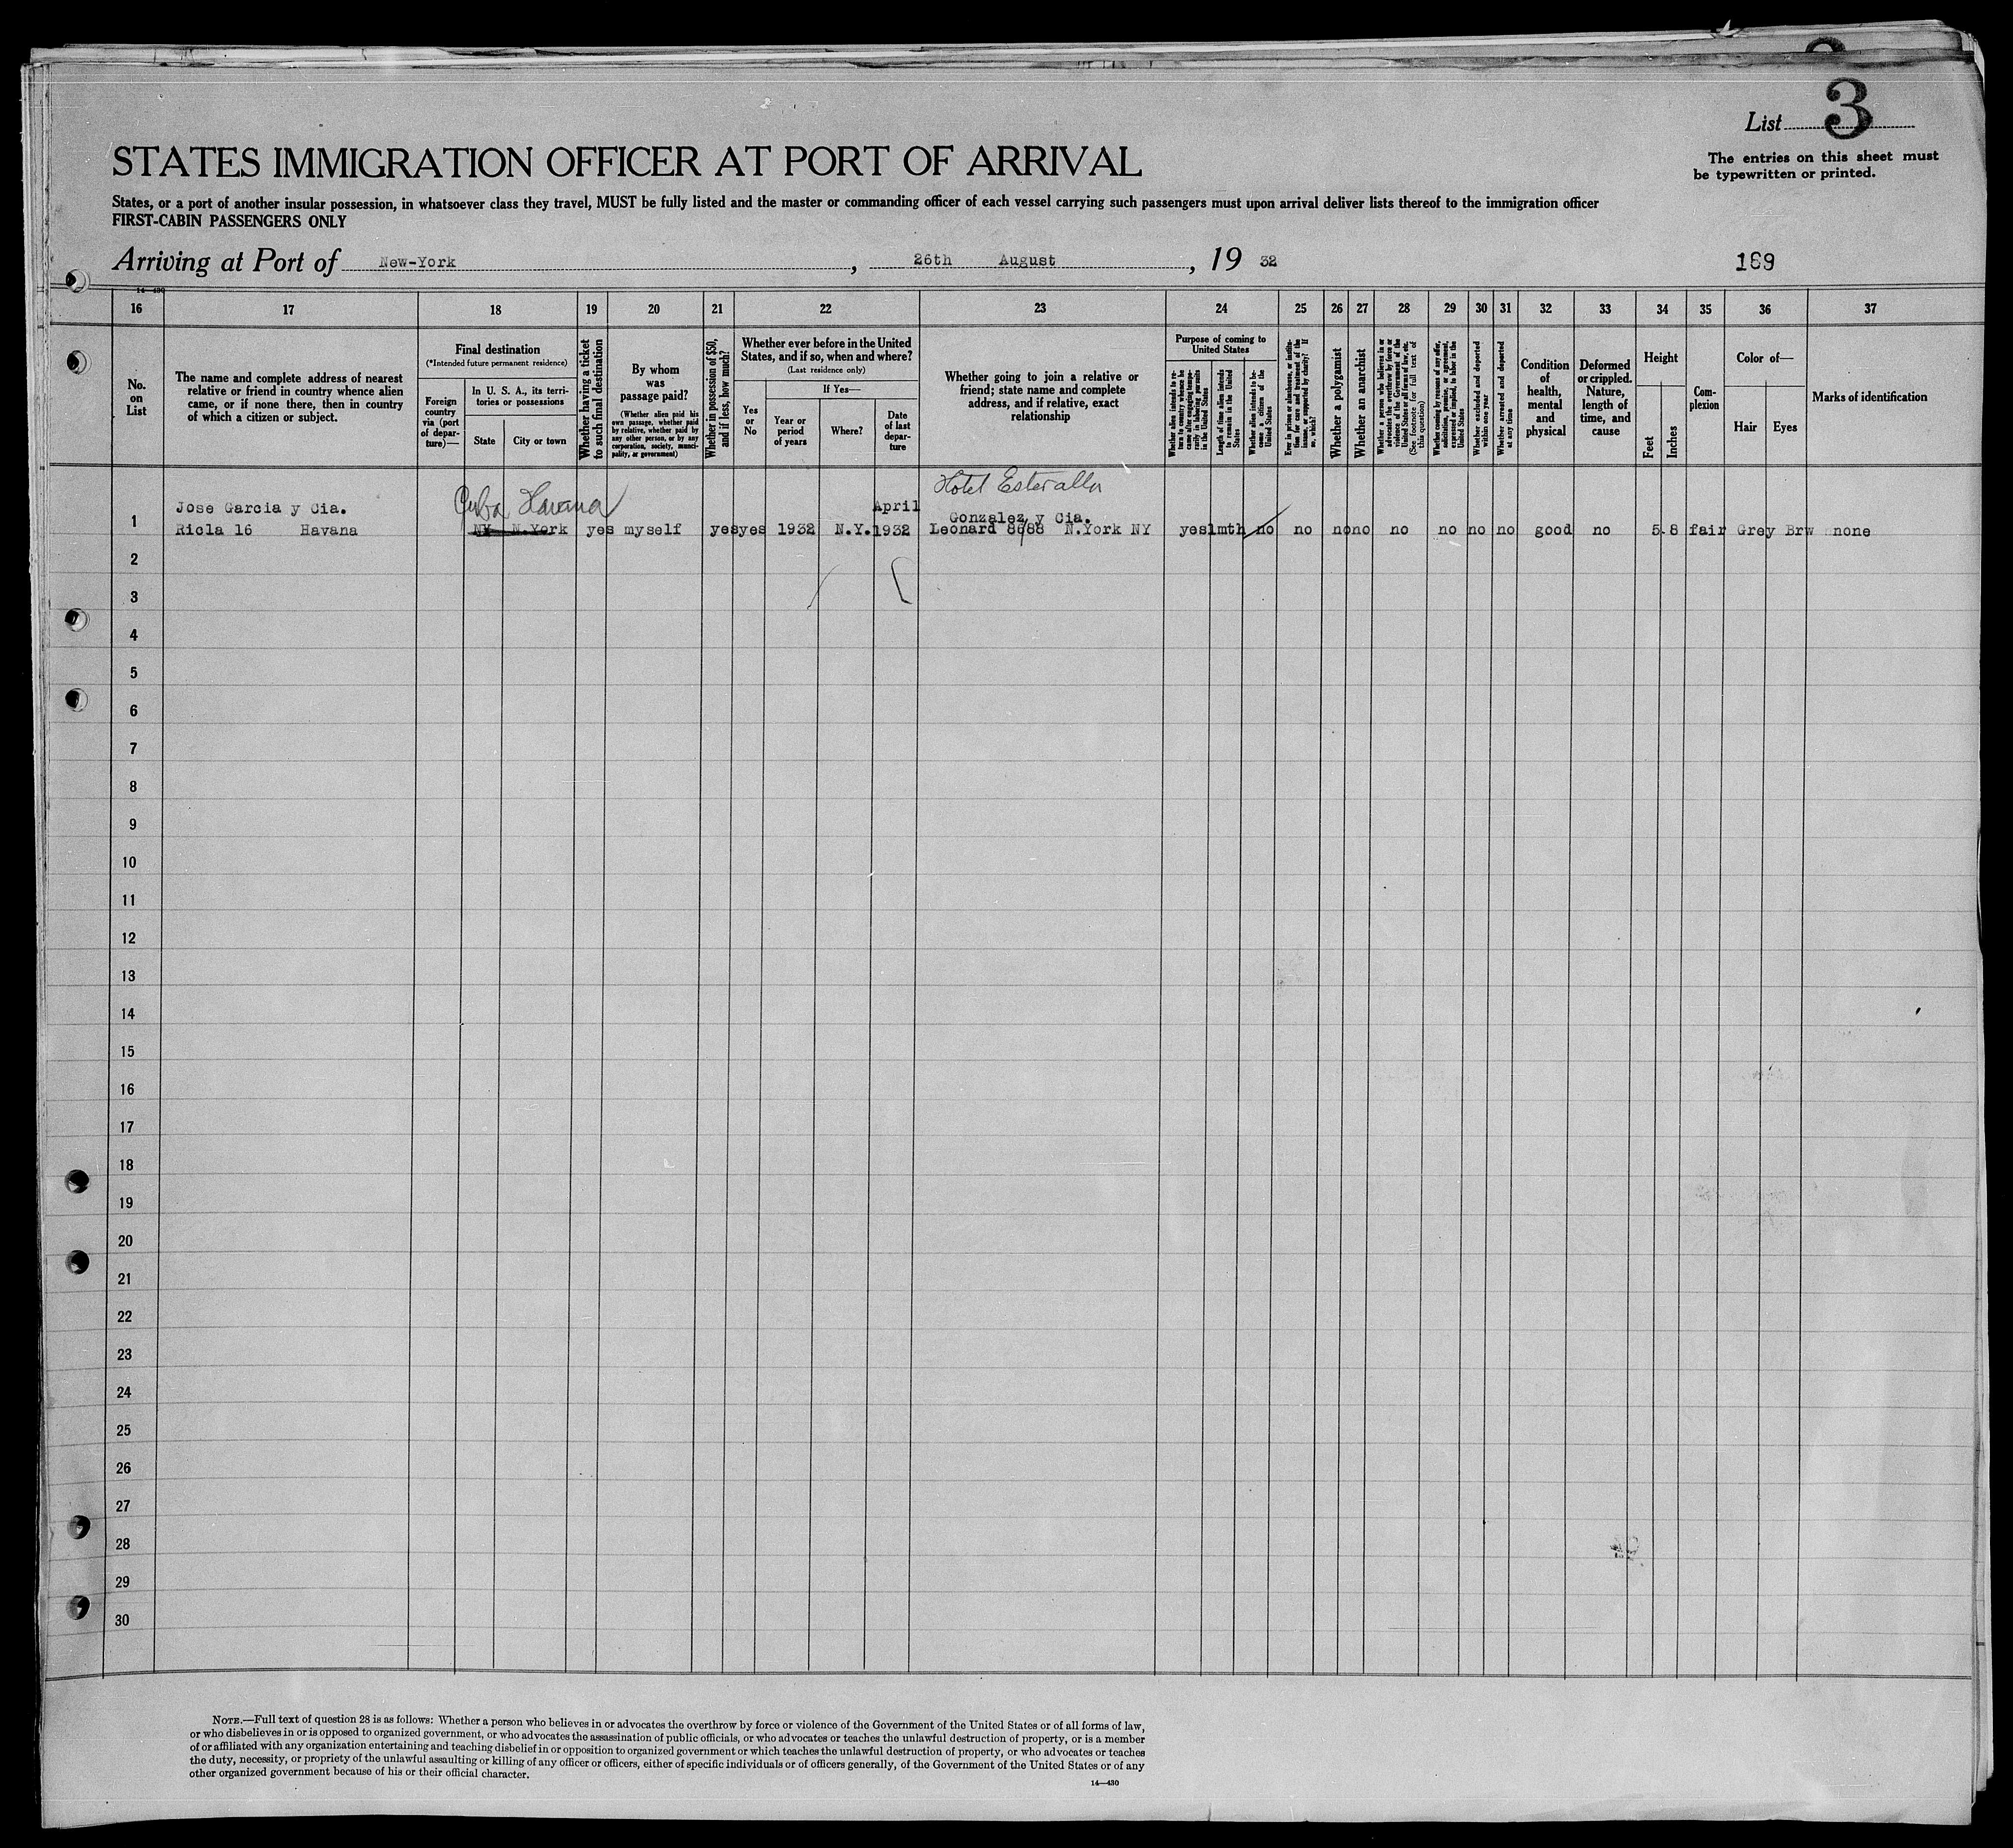 List 3
The entries on this sheet must
be typewritten or printed.
STATES IMMIGRATION OFFICER AT PORT OF ARRIVAL
States, or a port of another insular possession, in whatsoever class they travel, MUST be fully listed and the master or commanding officer of each vessel carrying such passengers must upon arrival deliver lists thereof to the immigration officer
FIRST-CABIN PASSENGERS ONLY
Arriving at Port of New-York, 26th August, 19 32
169
14-430
16 17 18 19 20 21 22 23 24 25 26 27 28 29 30 31 32 33 34 35 36 37
No.
on
List
The name and complete address of nearest
relative or friend in country whence alien
came, or if none there, then in country
of which a citizen or subject.
Final destination
(*Intended future permanent residence)
Foreign
country
via (port
of depar-
ture)—
In U. S. A., its terri-
tories or possessions
State
City or town
Whether having a ticket
to such final destination
By whom
was
passage paid?
(Whether alien paid his
own passage, whether paid
by relative, whether paid by
any other person, or by any
corporation, society, munici-
pality, or government)
Whether in possession of $50,
and if less, how much?
Whether ever before in the United
States, and if so, when and where?
(Last residence only)
Yes
or
No
If Yes—
Year or
period
of years
Where?
Date
of last
depar-
ture
Whether going to join a relative or
friend; state name and complete
address, and if relative, exact
relationship
Purpose of coming to
United States
Whether alien intends to re-
turn to country whence he
came after engaging tempo-
rarily in laboring pursuits
in the United States
Length of time alien intends
to remain in the United
States
Whether alien intends to be-
come a citizen of the
United States
Ever in prison or almshouse, or institu-
tion for care and treatment of the
insane, or supported by charity? If
so, which?
Whether a polygamist
Whether an anarchist
Whether a person who believes in or
advocates the overthrow by force or
violence of the Government of the
United States or all forms of law, etc.
(See footnote for full text of
this question)
Whether coming by reasons of any offer,
solicitation, promise, or agreement,
expressed or implied, to labor in the
United States
Whether excluded and deported
within one year
Whether arrested and deported
at any time
Condition
of
health,
mental
and
physical
Deformed
or crippled.
Nature,
length of
time, and
cause
Height
Feet
Inches
Com-
plexion
Color of—
Hair
Eyes
Marks of identification
Hotel Esteralla
Jose Garcia y Cia. Cuba Havana April Gonzalez y Cia.
1 Ricla 16 Havana NY N.York yes myself yes yes 1932 N.Y. 1932 Leonard 86/88 N.York NY yes 1mth no no no no no no no no good no 5 8 fair Grey Brw none
2
3
4
5
6
7
8
9
10
11
12
13
14
15
16
17
18
19
20
21
22
23
24
25
26
27
28
29
30
NOTE.—Full text of question 28 is as follows: Whether a person who believes in or advocates the overthrow by force or violence of the Government of the United States or of all forms of law,
or who disbelieves in or is opposed to organized government, or who advocates the assassination of public officials, or who advocates or teaches the unlawful destruction of property, or is a member
of or affiliated with any organization entertaining and teaching disbelief in or opposition to organized government or which teaches the unlawful destruction of property, or who advocates or teaches
the duty, necessity, or propriety of the unlawful assaulting or killing of any officer or officers, either of specific individuals or of officers generally, of the Government of the United States or of any
other organized government because of his or their official character.
14—430